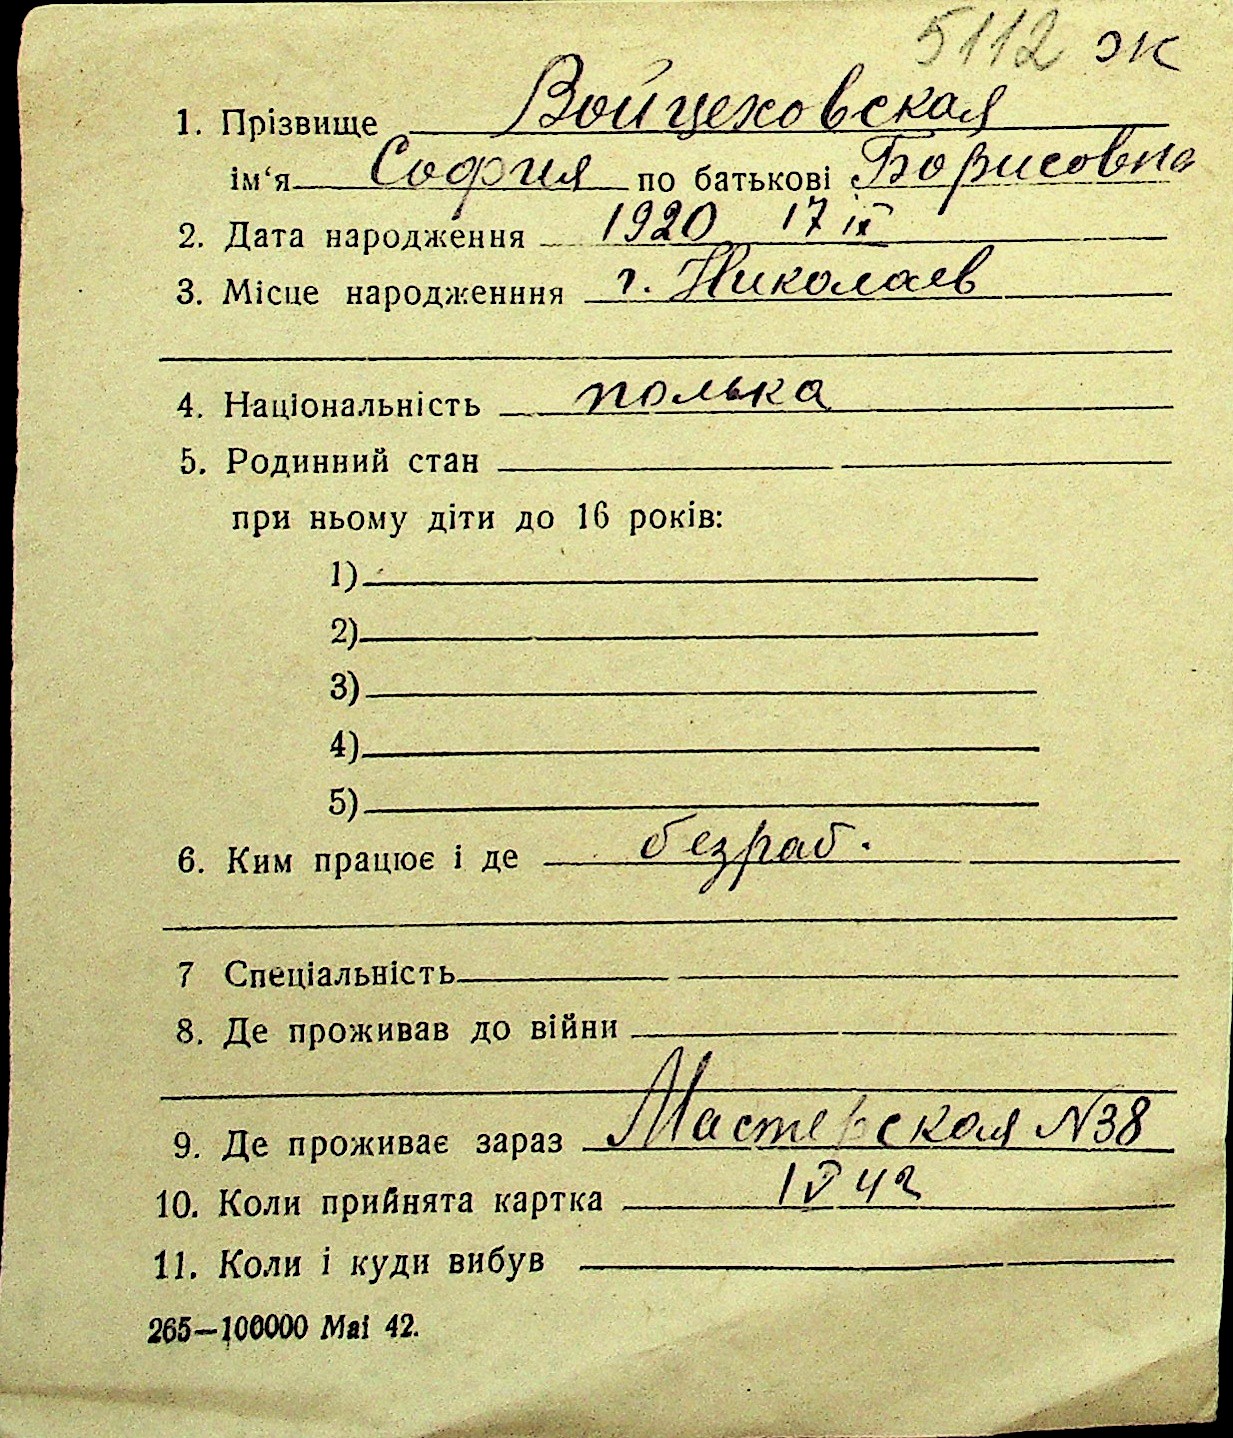 5112 эк
1. Прізвище Войцеховская
ім‘я София по батькові Борисовна
2. Дата народження 1920 17 IX
3. Місце народженння г. Николаев
4. Національність полька
5. Родинний стан
при ньому діти до 16 років:
1)
2)
3)
4)
5)
6. Ким працює і де безраб.
7 Спеціальність
8. Де проживав до війни
9. Де проживає зараз Мастерская N38
10. Коли прийнята картка 1 V 42
11. Коли і куди вибув
265—100000 Mai 42.